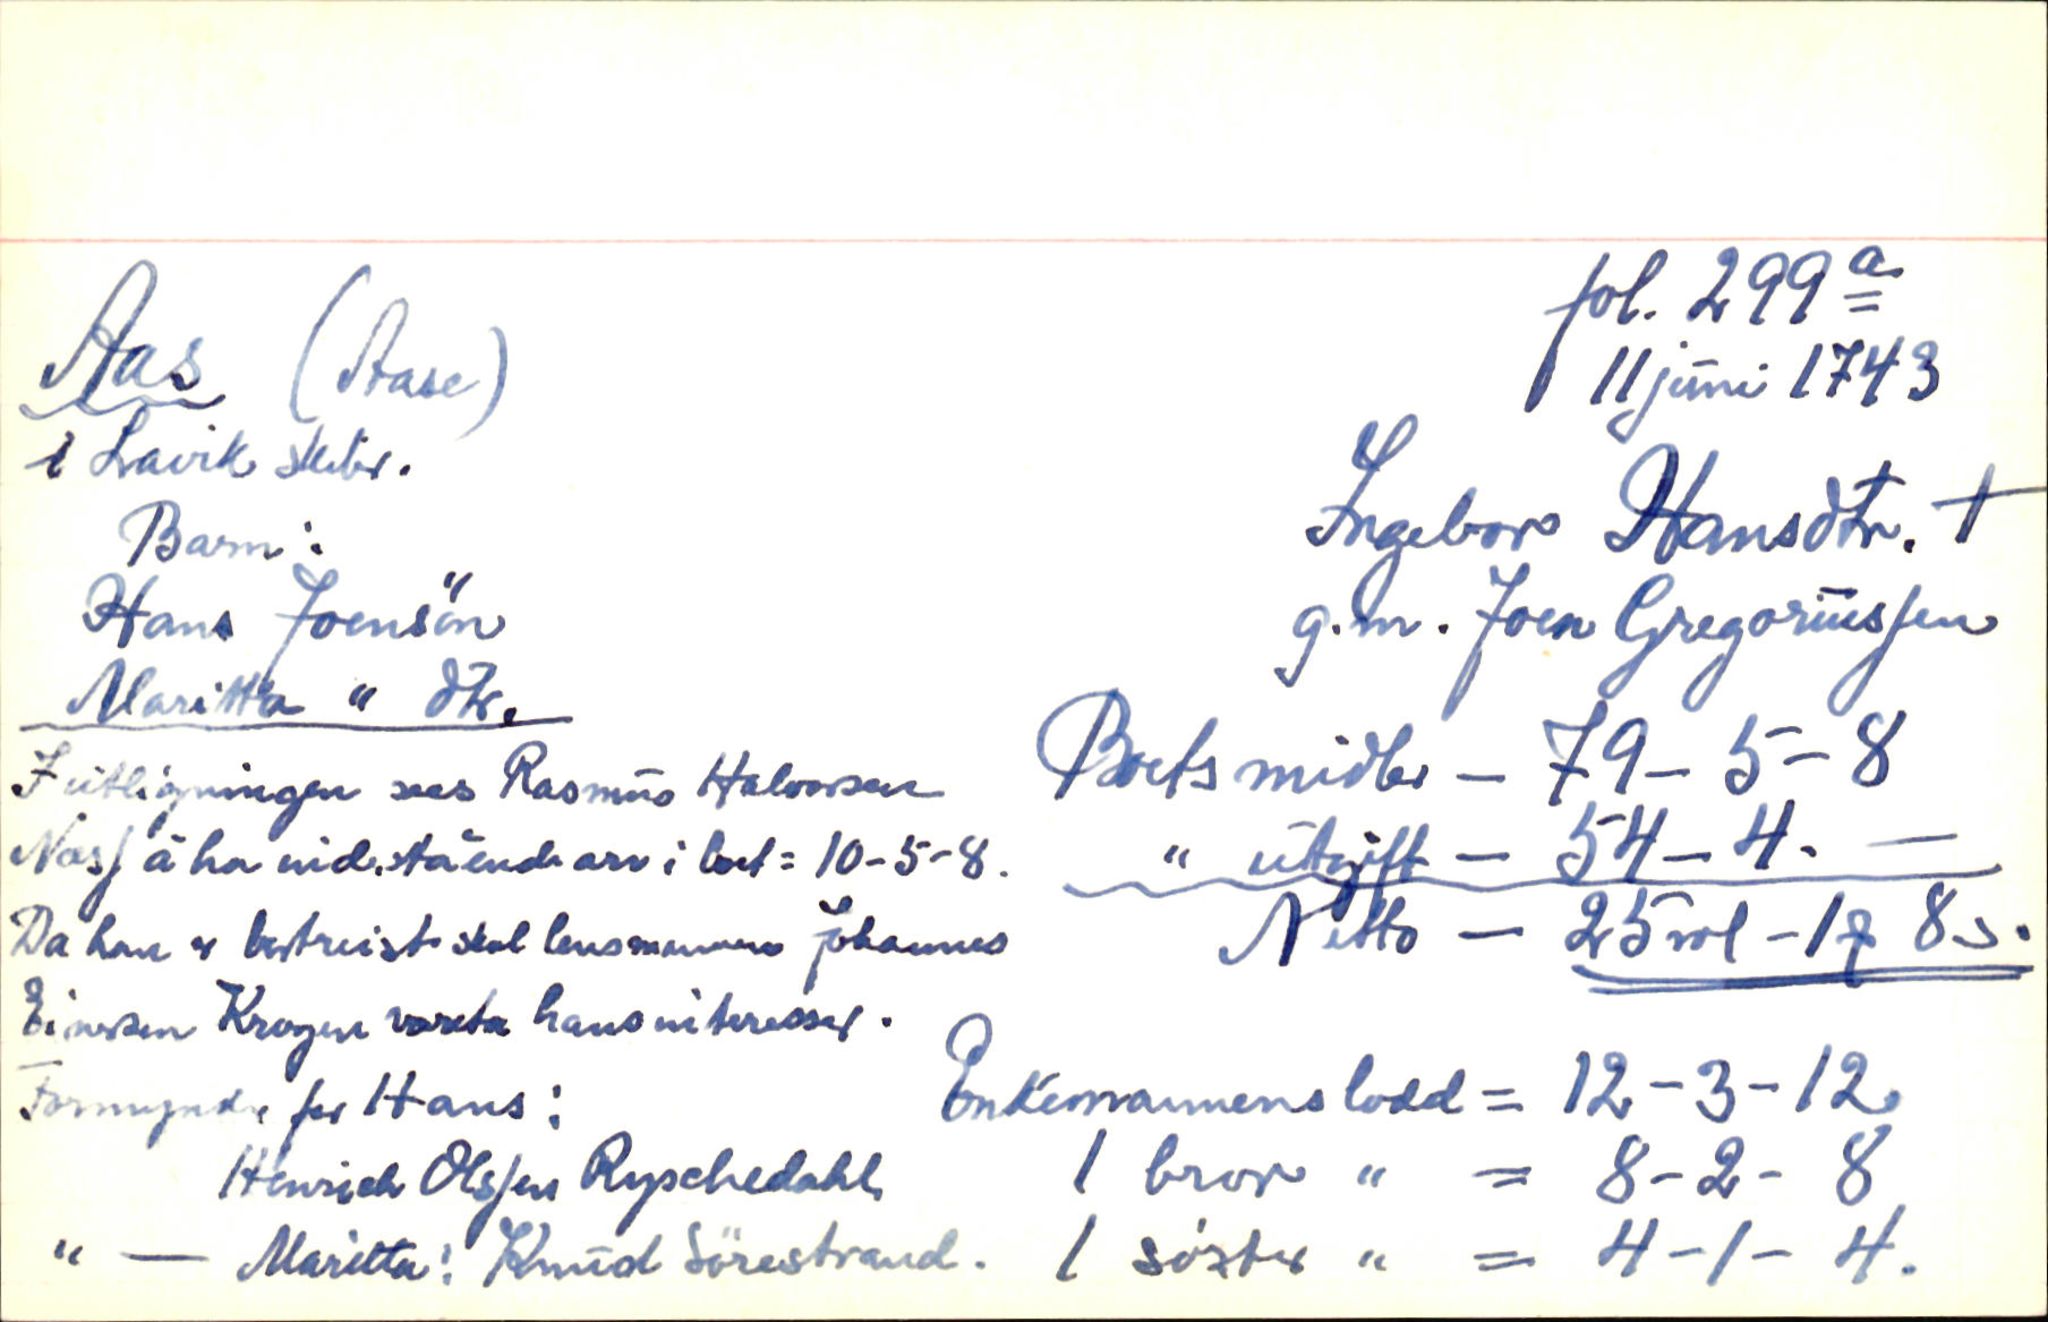 fol. 299 a
11 juni 1743
Aas (Aase)
i Lavik skibr.
Ingebor Hansdtr. †
g.m. Joen Gregoriussen
Barn:
Hans Joensön
Maritta " dtr.
Boets midler – 79 – 5 – 8
" utgift – 54 – 4. –
Netto – 25 rd – 1 8 s.
I utligningen sees Rasmus Halvorsen
Næss å ha innestående arv i boet = 10-5-8.
Da han er bortreist skal lensmannen Johannes
Einersen Krogen vareta hans interesser.
Formynder for Hans:
Henrich Olssen Ryschedahl
" — Maritta: Knud Sörestrand.
Enkemannens lodd = 12 – 3 – 12
1 bror " = 8 – 2 – 8
1 söster " = 4 – 1 – 4.